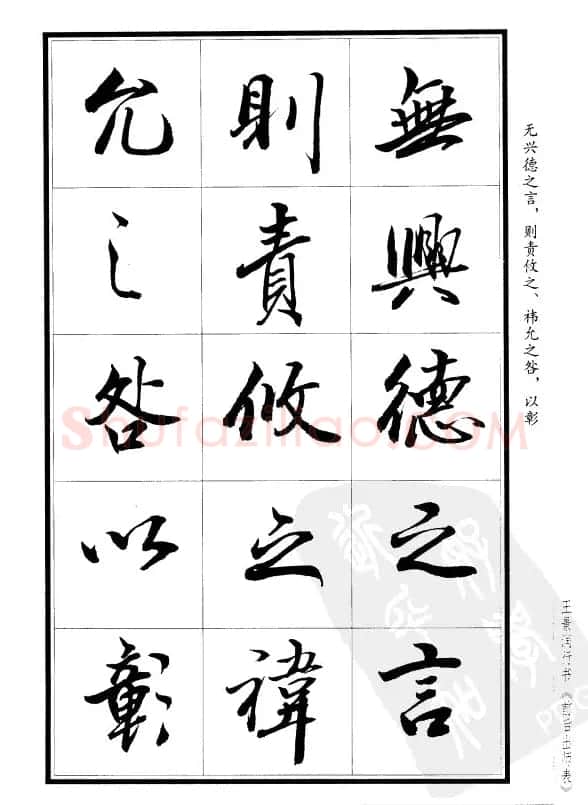 無興德之言
則責攸之禕
允之咎以彰
无兴德之言，则责攸之、祎允之咎，以彰
王景润行书《前后出师表》
Shufaziliao.COM